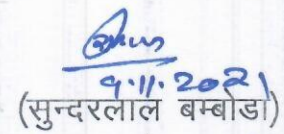 9.11.2021
(सुन्दरलाल बम्बोडा)